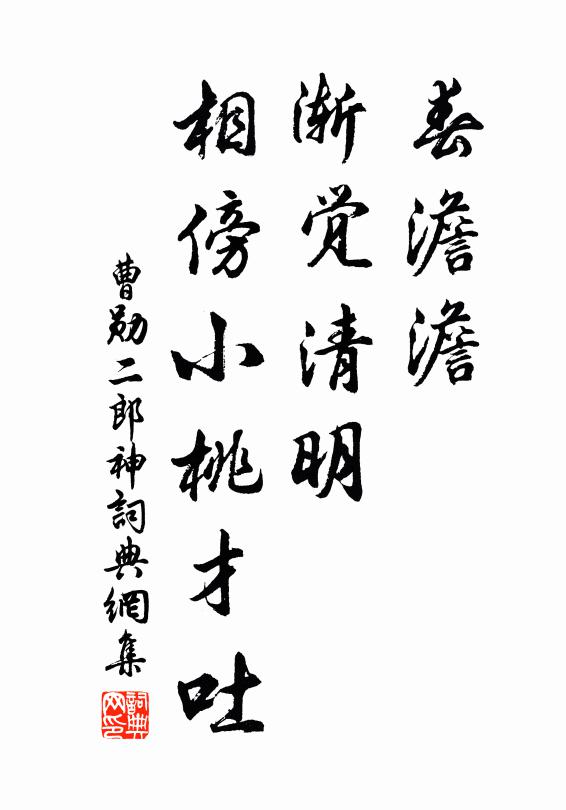 春澹澹
渐觉清明
相傍小桃才吐
曹勋二郎神詞典網集
詞典网印